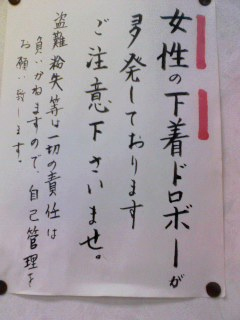 女性の下着ドロボーが
多発しております
ご注意下さいませ。
盗難紛失等は一切の責任は
負いかねますので、自己管理を
お願い致します。